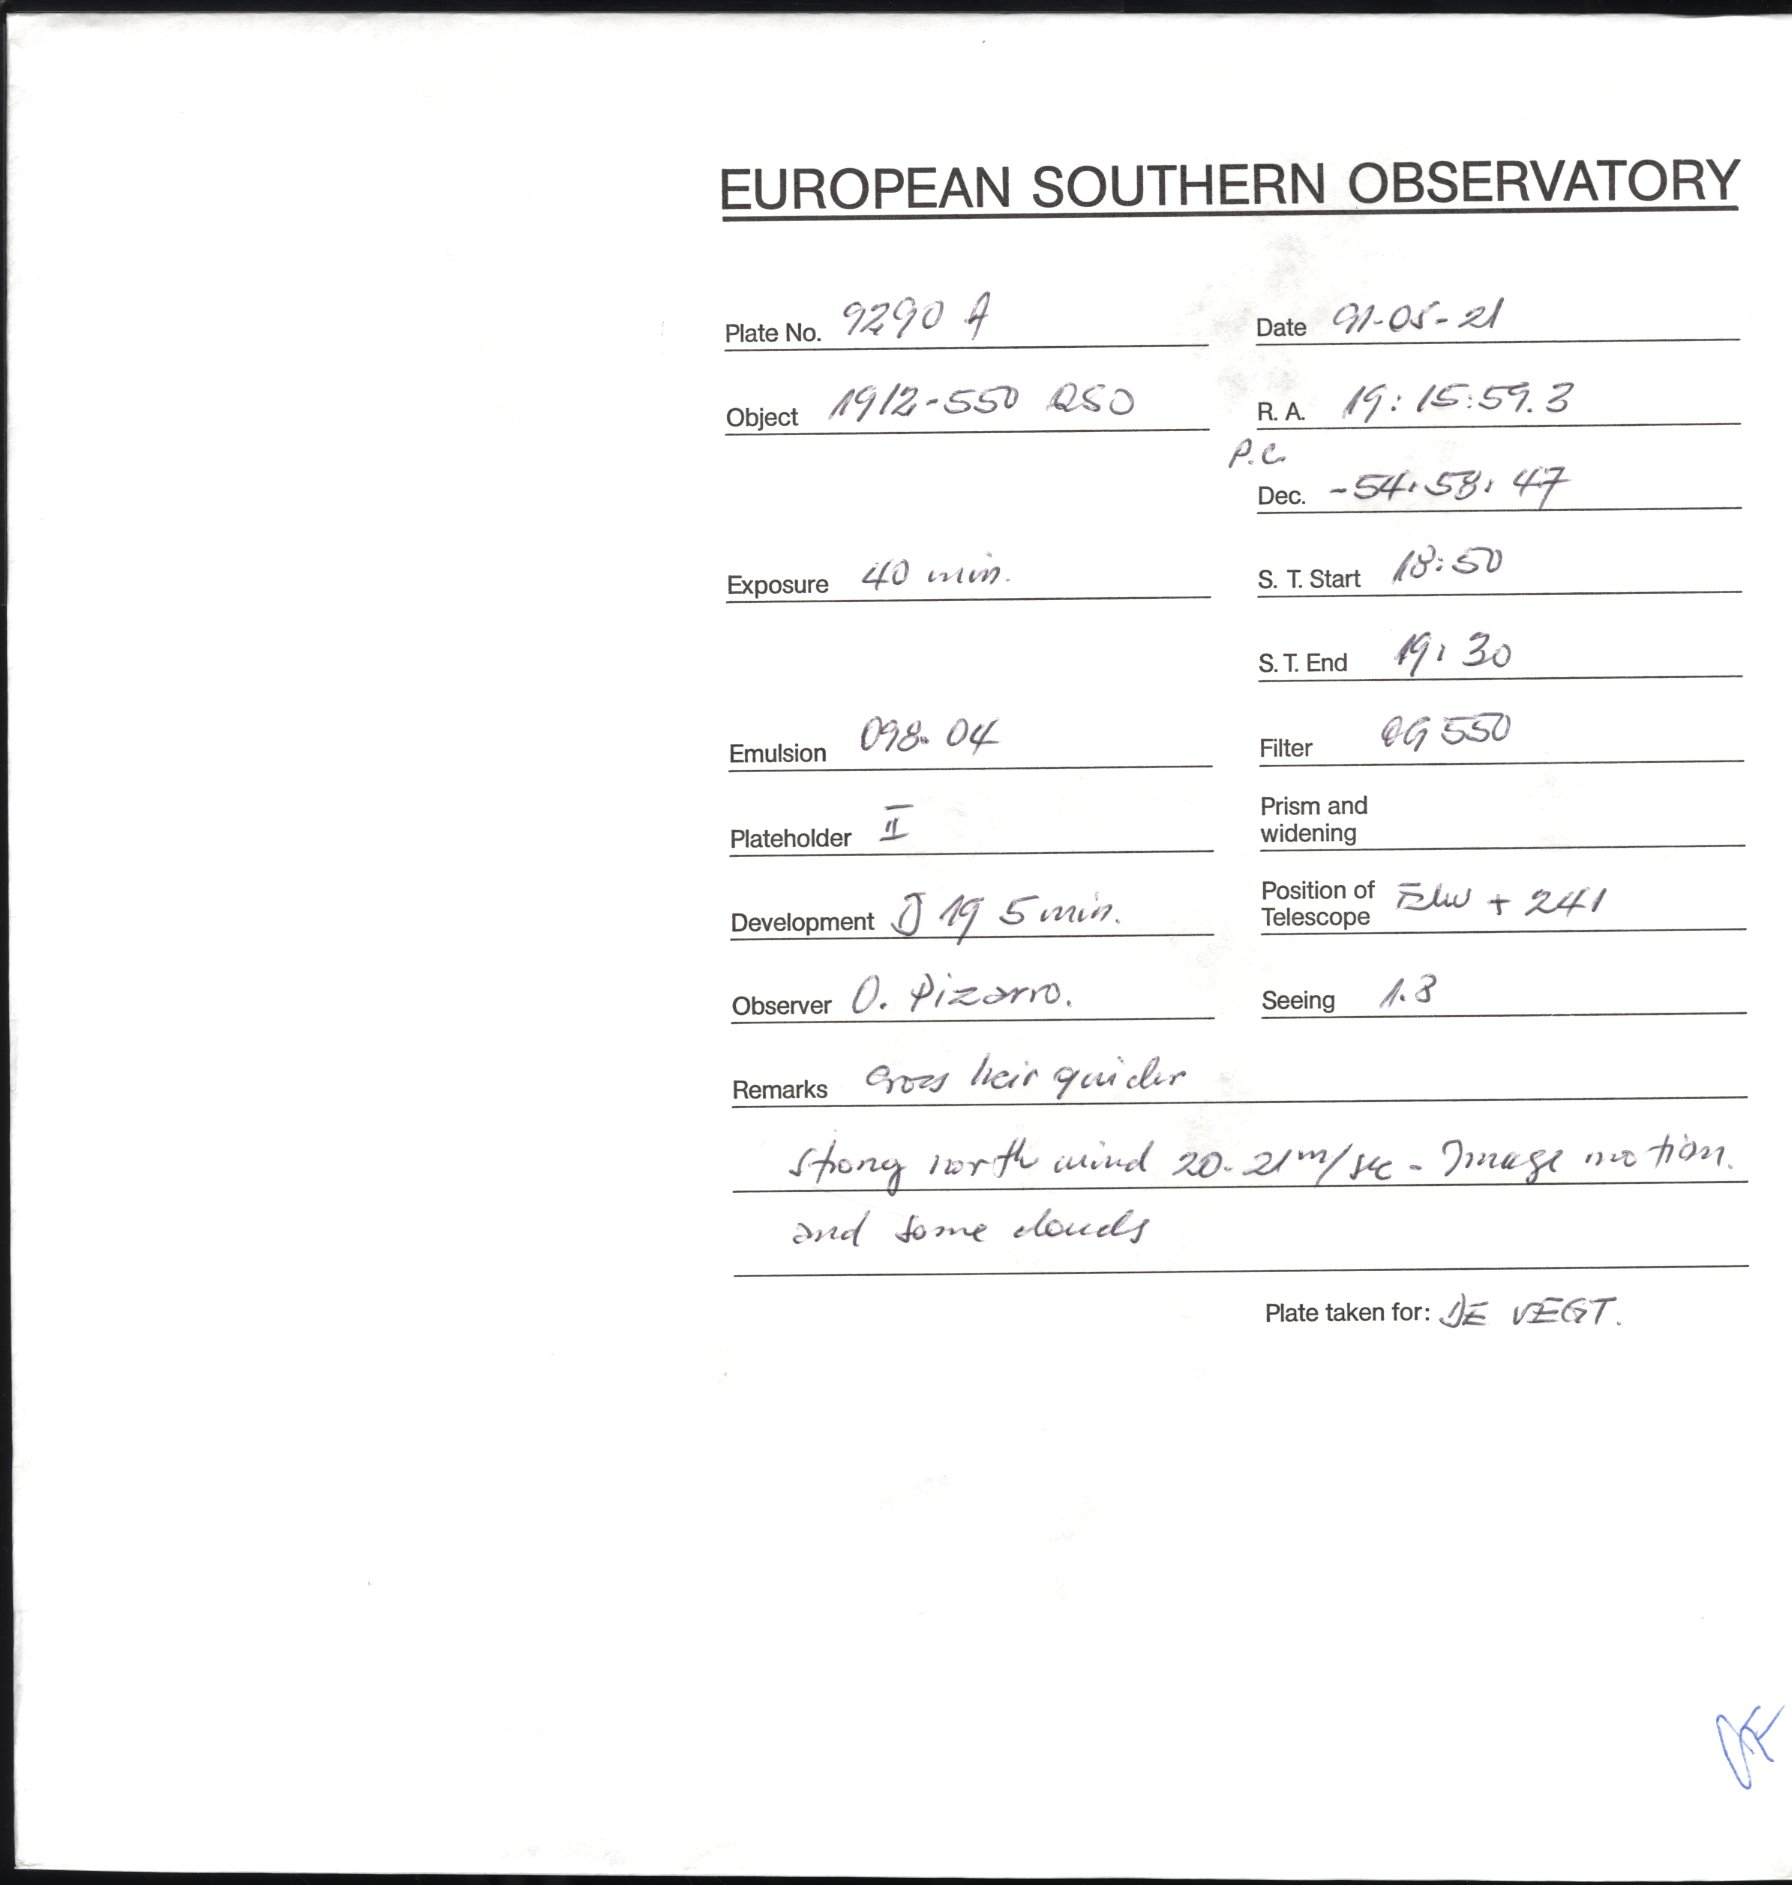 EUROPEAN SOUTHERN OBSERVATORY
Plate No. 9290 A
Date 91-05-21
Object 1912-550 QSO
R. A. 19:15:59.3
P.C.
Dec. -54:58:47
Exposure 40 min.
S. T. Start 18:50
S. T. End 19:30
Emulsion 098-04
Filter OG 550
Plateholder II
Prism and
widening
Development D 19 5 min.
Position of
Telescope + 241
Observer O. Pizarro.
Seeing 1.3
Remarks Cross heir guider
strong north wind 20-21 m/sec - Image motion.
and some clouds
Plate taken for: DE VEGT.